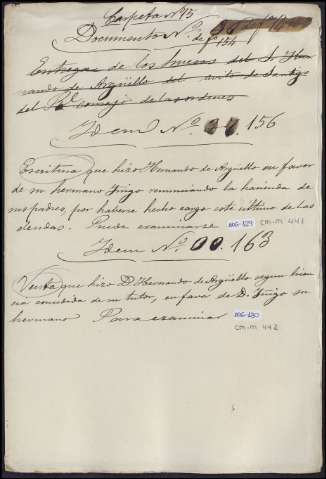 Carpeta nº 15
Documento Nº
de 154
Entrega de los huesos del S. Her-
nando de Argüello del avito de Santiago
del Rl. Consejo de las ordenes
Idem Nº 156
Escritura que hizo Hernando de Argüello en favor
de su hermano Iñigo renunciando la hacienda de
sus padres, por haberse hecho cargo este ultimo de las
deudas. Puede examinarse
106-129 CM-M 441
Idem Nº 00. 163
Venta que hizo D. Hernando de Argüello segun licen-
cia concedida de su tutor, en favor de D. Iñigo su
hermano Para examinar
106-130
CM-M 442